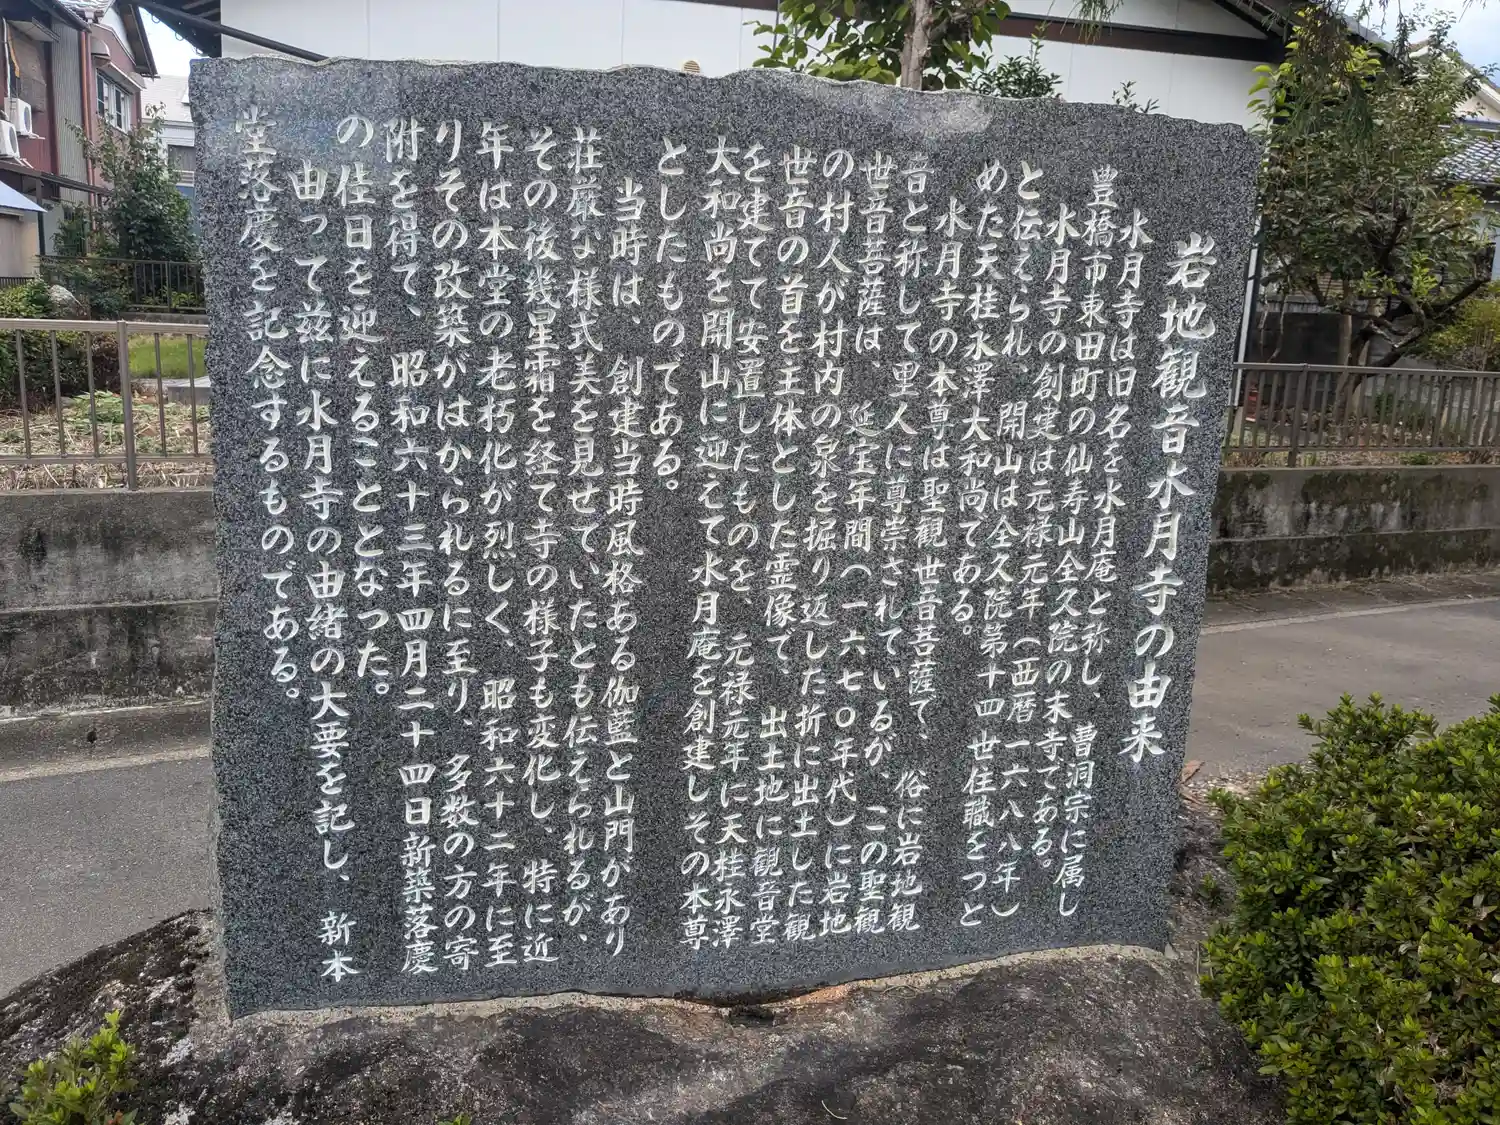 岩地観音水月寺の由来
水月寺は旧名を水月庵と称し、曹洞宗に属し
豊橋市東田町の仙寿山全久院の末寺である。
水月寺の創建は元禄元年(西暦一六八八年)
と伝えられ、開山は全久院第十四世住職をつと
めた天桂永澤大和尚である。
水月寺の本尊は聖観世音菩薩で、俗に岩地観
音と称して里人に尊崇されているが、この聖観
世音菩薩は、延宝年間(一六七〇年代)に岩地
の村人が村内の泉を掘り返した折に出土した観
世音の首を主体とした霊像で、出土地に観音堂
を建てて安置したものを、元禄元年に天桂永澤
大和尚を開山に迎えて水月庵を創建しその本尊
としたものである。
当時は、創建当時風格ある伽藍と山門があり
荘厳な様式美を見せていたとも伝えられるが、
その後幾星霜を経て寺の様子も変化し、特に近
年は本堂の老朽化が烈しく、昭和六十二年に至
りその改築がはかられるに至り、多数の方の寄
附を得て、昭和六十三年四月二十四日新築落慶
の佳日を迎えることとなった。
由って茲に水月寺の由緒の大要を記し、新本
堂落慶を記念するものである。